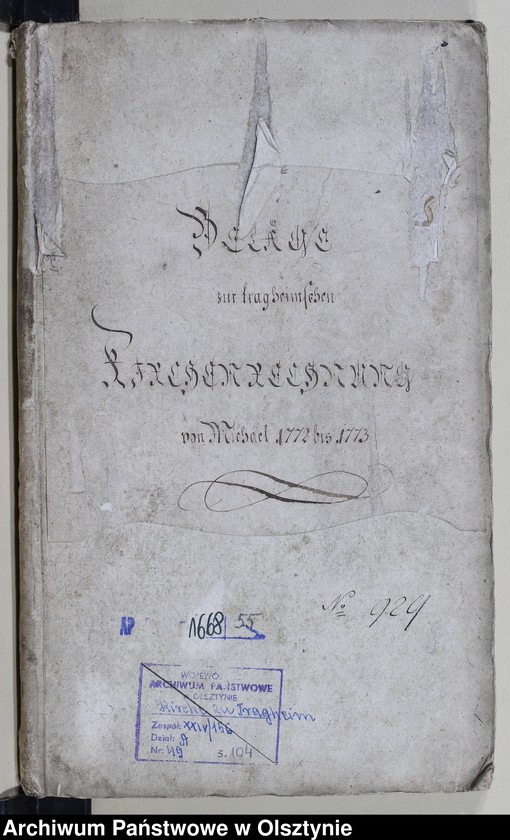 Beläge
zur tragheimschen
Kirchenrechnung
von Michael 1772 bis 1773
No 929
AP 1668 55
WOJEWÓ.
ARCHIWUM PAŃSTWOWE
OLSZTYNIE
Kirche zu Tragheim
Zespół: XXIV/156
Dział: A
Nr: 49 s. 104
Archiwum Państwowe w Olsztynie